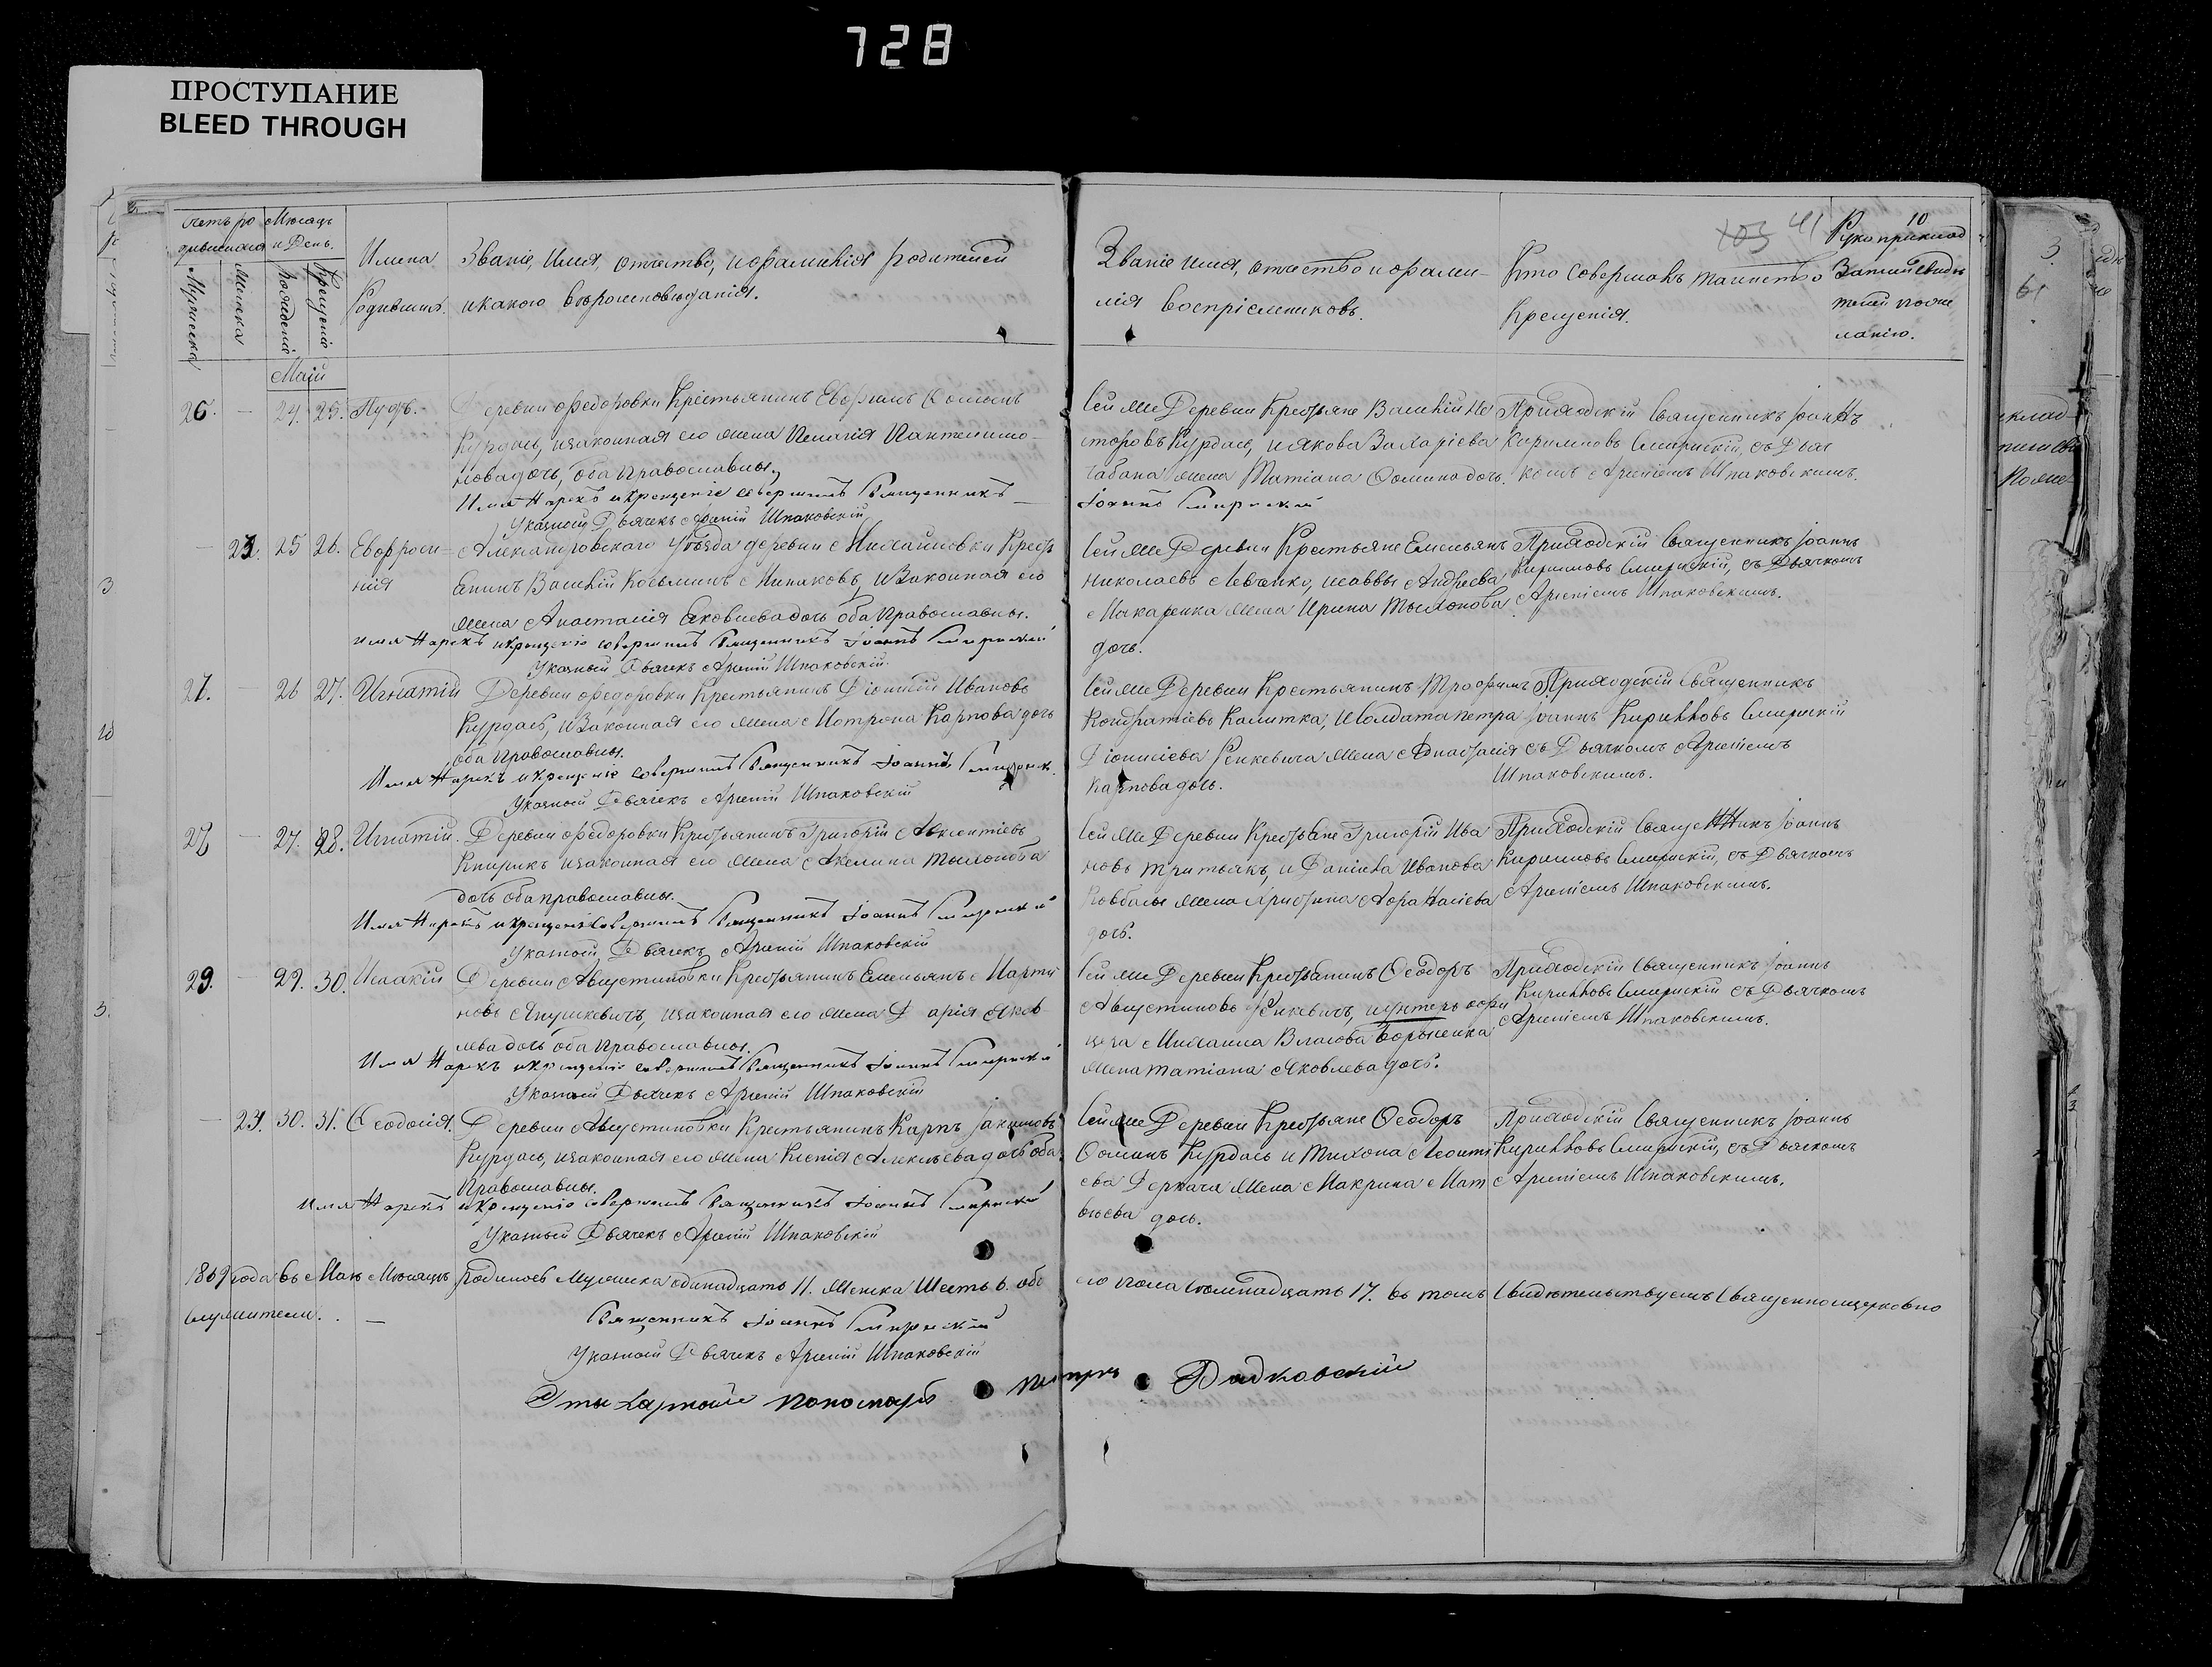 728
ПРОСТУПАНИЕ
BLEED THROUGH
Счетъ ро Мѣсяцъ
дившихся и День.
Мужеска Женска Рожденія Крещенія
Имена
Родившихъ.
Званіе, Имя, отчество, и фамилія родителей
и какого вѣроисповѣданія.
Званіе имя, отчество и фами-
лія воспріемниковъ.
Кто совершалъ таинство
крещенія.
103 41
10
Рукоприклад
Маій
26. — 24. 25. Пудъ. Деревни Федоровки Крестьянинъ Евфимъ Фоминъ
Курдасъ, и законная его жена Пелагія Пантелимо-
нова дочь, оба Православны.
Имя Нарекъ и крещеніе совершилъ Священникъ
Указный Дьячекъ Арсеній Шпаковскій
Сей же Деревни Крестьяне Василій Не
сторовъ Курдасъ, и Якова Захаріева
Чабана жена Татіана Фомина дочь.
Іоаннъ Смирнскій
Приходскій Священникъ Іоаннъ
Кириловъ Смирнскій, съ Дьяч
комъ Арсеніемъ Шпаковскимъ.
— 23. 25 26. Евфроси=
нія
Александровскаго Уѣзда деревни Михайловки Крест
янинъ Василій Косьминъ Минаковъ, и Законная его
жена Анастасія Яковлева дочь оба Православны.
имя Нарекъ и крещеніе совершилъ Священникъ Іоаннъ Смирнскій
Указный Дьячекъ Арсеній Шпаковскій.
Сей же Деревни Крестьяне Емельянъ
Николаевъ Левченко, и Саввы Андреева
Макаренка жена Ирина Тимонова
дочь.
Приходскій Священникъ Іоаннъ
Кириловъ Смирнскій, съ Дьячкомъ
Арсеніемъ Шпаковскимъ.
27. — 26 27. Игнатій Деревни Федоровки Крестьянинъ Діонисій Ивановъ
Курдасъ, и Законная его жена Мотрона Карпова дочь
оба Православны.
Имя Нарекъ и крещеніе совершилъ Священникъ Іоаннъ Смирнск.
Указный Дьячекъ Арсеній Шпаковскій
Сей же Деревни Крестьянинъ Трофимъ
Кондратіевъ Калитка, и Солдата Петра
Діонисіева Сенкевича жена Анастасія
Карпова дочь.
Приходскій Священникъ
Іоаннъ Кирилловъ Смирнскій
съ Дьячкомъ Арсеніемъ
Шпаковскимъ.
28 — 27. 28. Игнатій. Деревни Федоровки Крестьянинъ Григорій Авксентіевъ
Книрикъ и законная его жена Акелина Тимонова
дочь оба православны.
Имя Нарекъ и крещеніе совершилъ Священникъ Іоаннъ Смирнскій
Указный Дьячекъ Арсеній Шпаковскій
Сей же Деревни Крестьяне Григорій Ива
новъ Тритьякъ, и Даніила Иванова
Ковбасы жена Христина Афанасіева
дочь.
Приходскій Священникъ Іоаннъ
Кириловъ Смирнскій, съ Дьячкомъ
Арсеніемъ Шпаковскимъ.
29. — 29. 30. Исаакій Деревни Августиновки Крестьянинъ Емельянъ Марти
новъ Янушкевичъ, и законная его жена Дарія Яков
лева дочь оба Православны.
Имя Нарекъ и крещеніе совершилъ Священникъ Іоаннъ Смирнскій
Указный Дьячекъ Арсеній Шпаковскій
Сей же Деревни Крестьянинъ Феодоръ
Августиновъ Сенкевичъ, и унтеръ офи
цера Михаила Власова Борысенка
жена Татіана Яковлева дочь.
Приходскій Священникъ Іоаннъ
Кирилловъ Смирнскій съ Дьячкомъ
Арсеніемъ Шпаковскимъ.
— 23. 30. 31. Феодосія. Деревни Августиновки Крестьянинъ Карпъ Іакимовъ
Курдасъ, и законная его жена Ксенія Алексѣева дочь оба
Православны.
Имя Нарекъ и крещеніе совершилъ Священникъ Іоаннъ Смирнскій
Указный Дьячекъ Арсеній Шпаковскій
Сей же Деревни Крестьяне Феодоръ
Фоминъ Курдасъ и Тихона Леонти
ева Деркача жена Макрина Мат
вѣева дочь.
Приходскій Священникъ Іоаннъ
Кирилловъ Смирнскій, съ Дьячкомъ
Арсеніемъ Шпаковскимъ.
1869 года въ Маѣ Мѣсяцѣ родилось Мужеска одинадцать 11. Женска Шесть 6. обо
его пола семнадцать 17. въ томъ Свидѣтельствуемъ Священно церковно
служители.
Священникъ Іоаннъ Смирнскій
Указный Дьячекъ Арсеній Шпаковскій
Пономарь Петръ Дадковскій